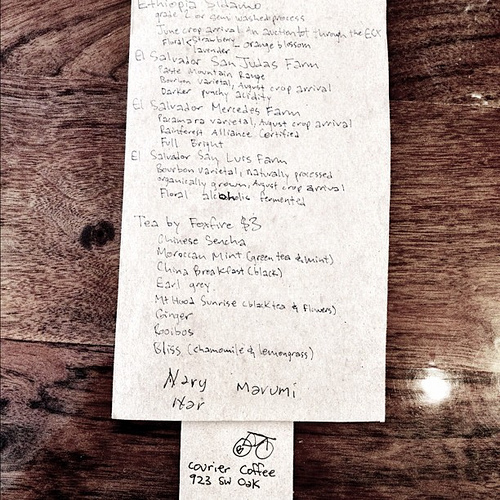 Ethiopia Sidamo
grade 2 or semi washed process
June crop arrival. An auction lot through the ECX
Floral - strawberry
lavender - orange blossom
El Salvador San Judas Farm
Mountain Range
Bourbon varietal, August crop arrival
Darker punchy acidity
El Salvador Mercedes Farm
Pacamara varietal, August crop arrival
Rainforest Alliance Certified
Full Bright
El Salvador San Luis Farm
Bourbon varietal, Naturally processed
organically grown, August crop arrival
Floral alcoholic fermented
Tea by Foxfire $3
Chinese Sencha
Moroccan Mint (green tea & mint)
China Breakfast (black)
Earl grey
Mt Hood Sunrise (black tea & flowers)
Ginger
Rooibos
Bliss (chamomile & lemongrass)
Nary Marumi
Har
Courier Coffee
923 SW Oak